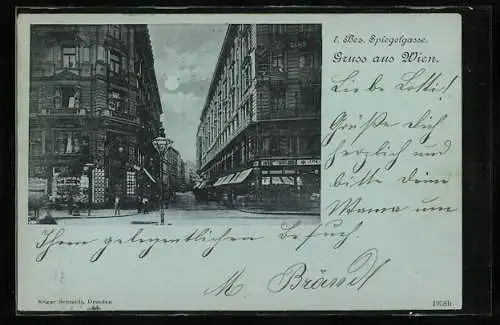 I. Bez. Spiegelgasse.
Gruss aus Wien.
Liebe Lotti!
Grüße Dich
herzlich und
bitte Deine
Mama um
Ihren gelegentlichen Besuch.
M. Brändl
Edgar Schmidt, Dresden